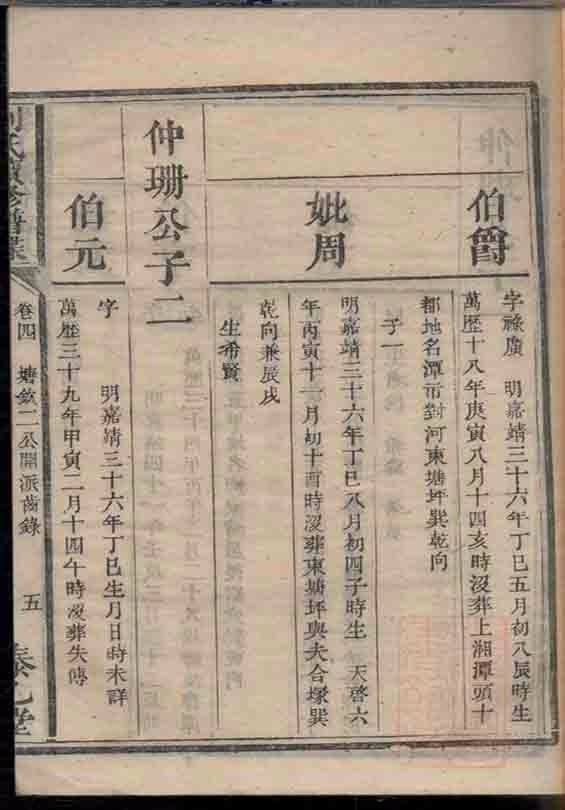 伯爵
字祿廣　明嘉靖三十六年丁巳五月初八辰時生
萬歷十八年庚寅八月十四亥時沒葬上湘潭頭十
都地名潭市對河東塘坪巽乾向
子一
妣周
明嘉靖三十六年丁巳八月初四子時生　天啓六
年丙寅十一月初十酉時沒葬東塘坪與夫合塚巽
乾向兼辰戌
生希賢
仲珊公子二
伯元
字　　明嘉靖三十六年丁巳生月日時未詳
萬歷三十九年甲寅二月十四午時沒葬失傳
氏續修譜
卷四　塘欽二公開派齒錄
五
堂